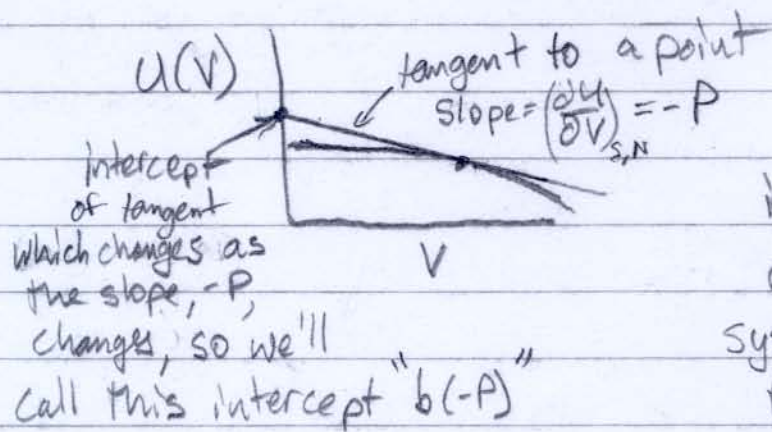 U(V)
tangent to a point
Slope = (∂U/∂V)S,N = -P
intercept
of tangent
which changes as
the slope, -P,
changes, so we'll
call this intercept "b(-P)"
V
sy